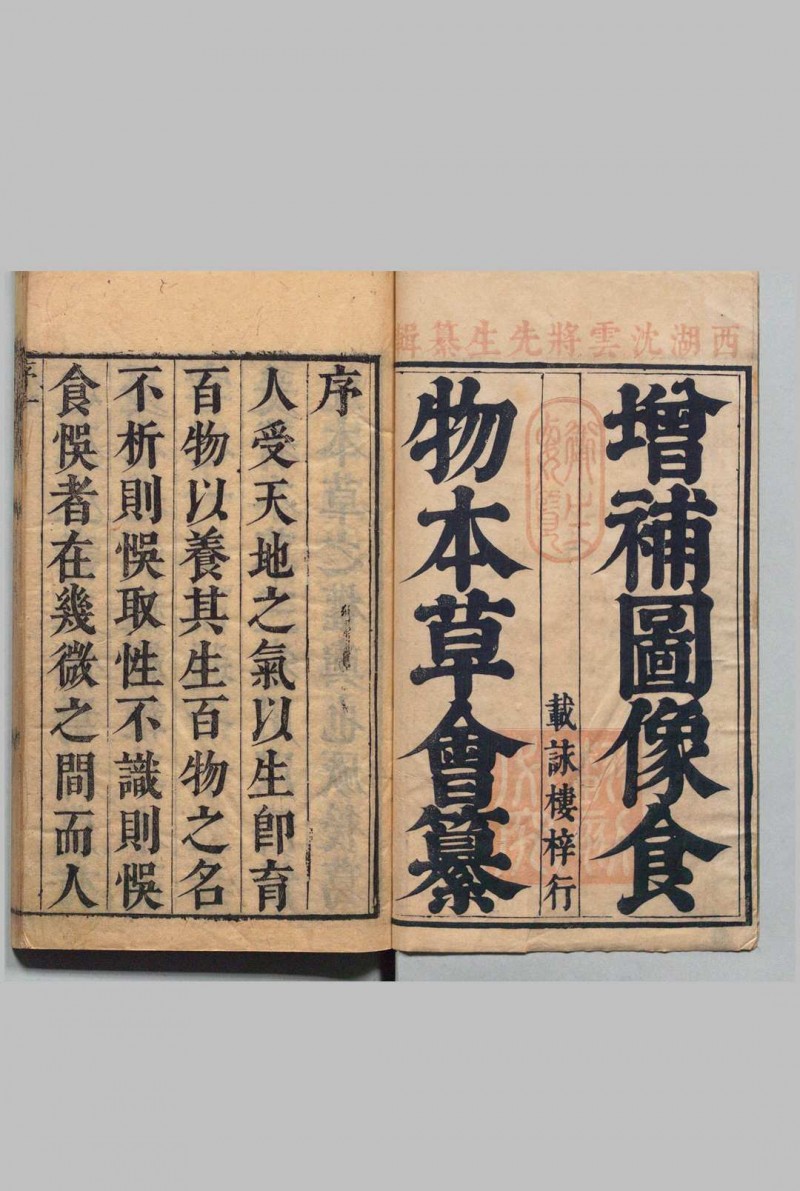 西湖沈雲將先生纂輯
增補圖像食
物本草會纂
載詠樓梓行
序
人受天地之氣以生卽育
百物以養其生百物之名
不析則悞取性不識則悞
食悞者在幾微之間而人
序一